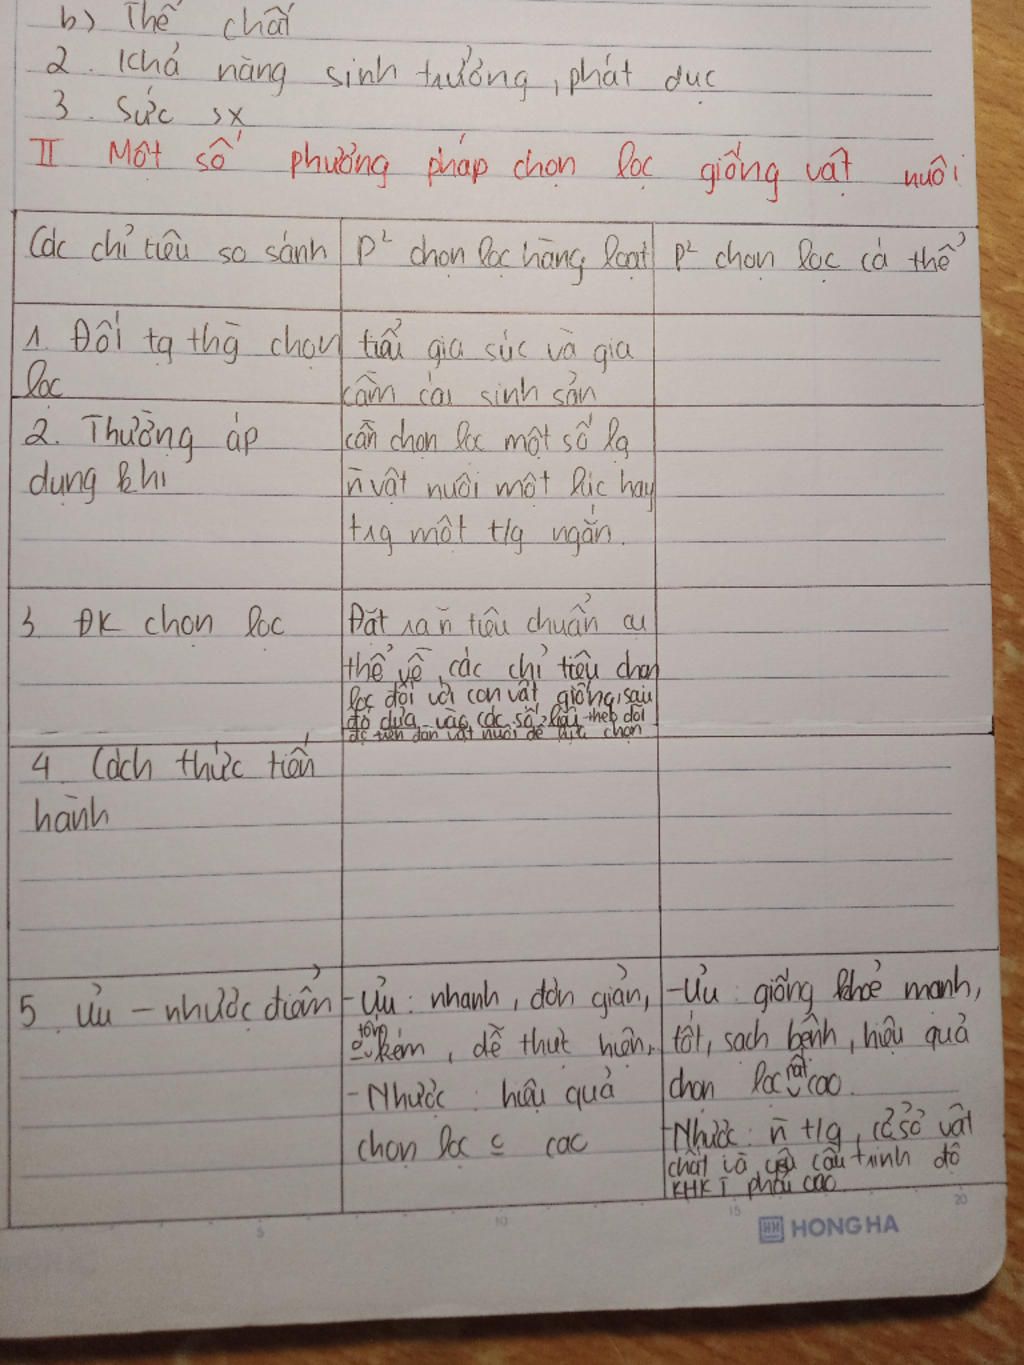 b) Thể chất
2. Khả năng sinh trưởng, phát dục
3. Sức sx
II Một số phương pháp chọn lọc giống vật nuôi
Các chỉ tiêu so sánh
P² chọn lọc hàng loạt
P² chọn lọc cá thể
1. Đối tg thg chọn
lọc
tiểu gia súc và gia
cầm cái sinh sản
2. Thường áp
dụng khi
cần chọn lọc một số lg
n̄ vật nuôi một lúc hay
trg một t/g ngắn.
3 ĐK chọn lọc
Đặt ra n̄ tiêu chuẩn cụ
thể về các chỉ tiêu chọn
lọc đối với con vật giống, sau
đó dựa vào các số liệu theo dõi
đc trên đàn vật nuôi để lựa chọn
4 Cách thức tiến
hành
5. Ưu - nhược điểm
- Ưu: nhanh, đơn giản,
tốn
kém, dễ thực hiện.
- Nhược: hiệu quả
chọn lọc cao
- Ưu: giống khoẻ mạnh,
tốt, sạch bệnh, hiệu quả
rất
chọn lọc cao.
- Nhược: n̄ t/g, cơ sở vật
chất và yêu cầu trình độ
KHKT phải cao
5 10 15 20
HH HONG HA